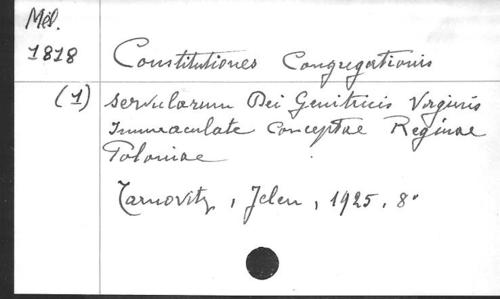 Mél.
1818
Constitutiones Congregationis
(1) servularum Dei Genitricis Virginis
Immaculate Conceptae Reginae
Poloniae
Tarnovitz, Jelen, 1925, 8°